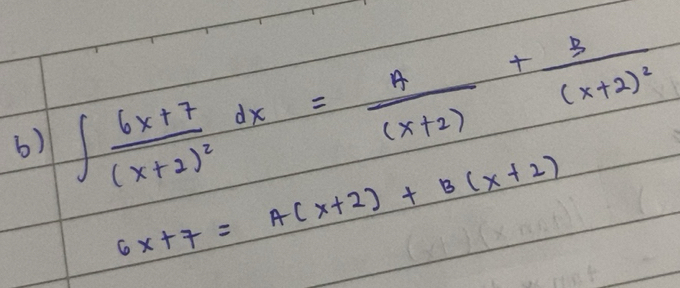 b) ∫ 6x+7/(x+2)² dx = A/(x+2) + B/(x+2)²
6x+7 = A(x+2) + B(x+2)